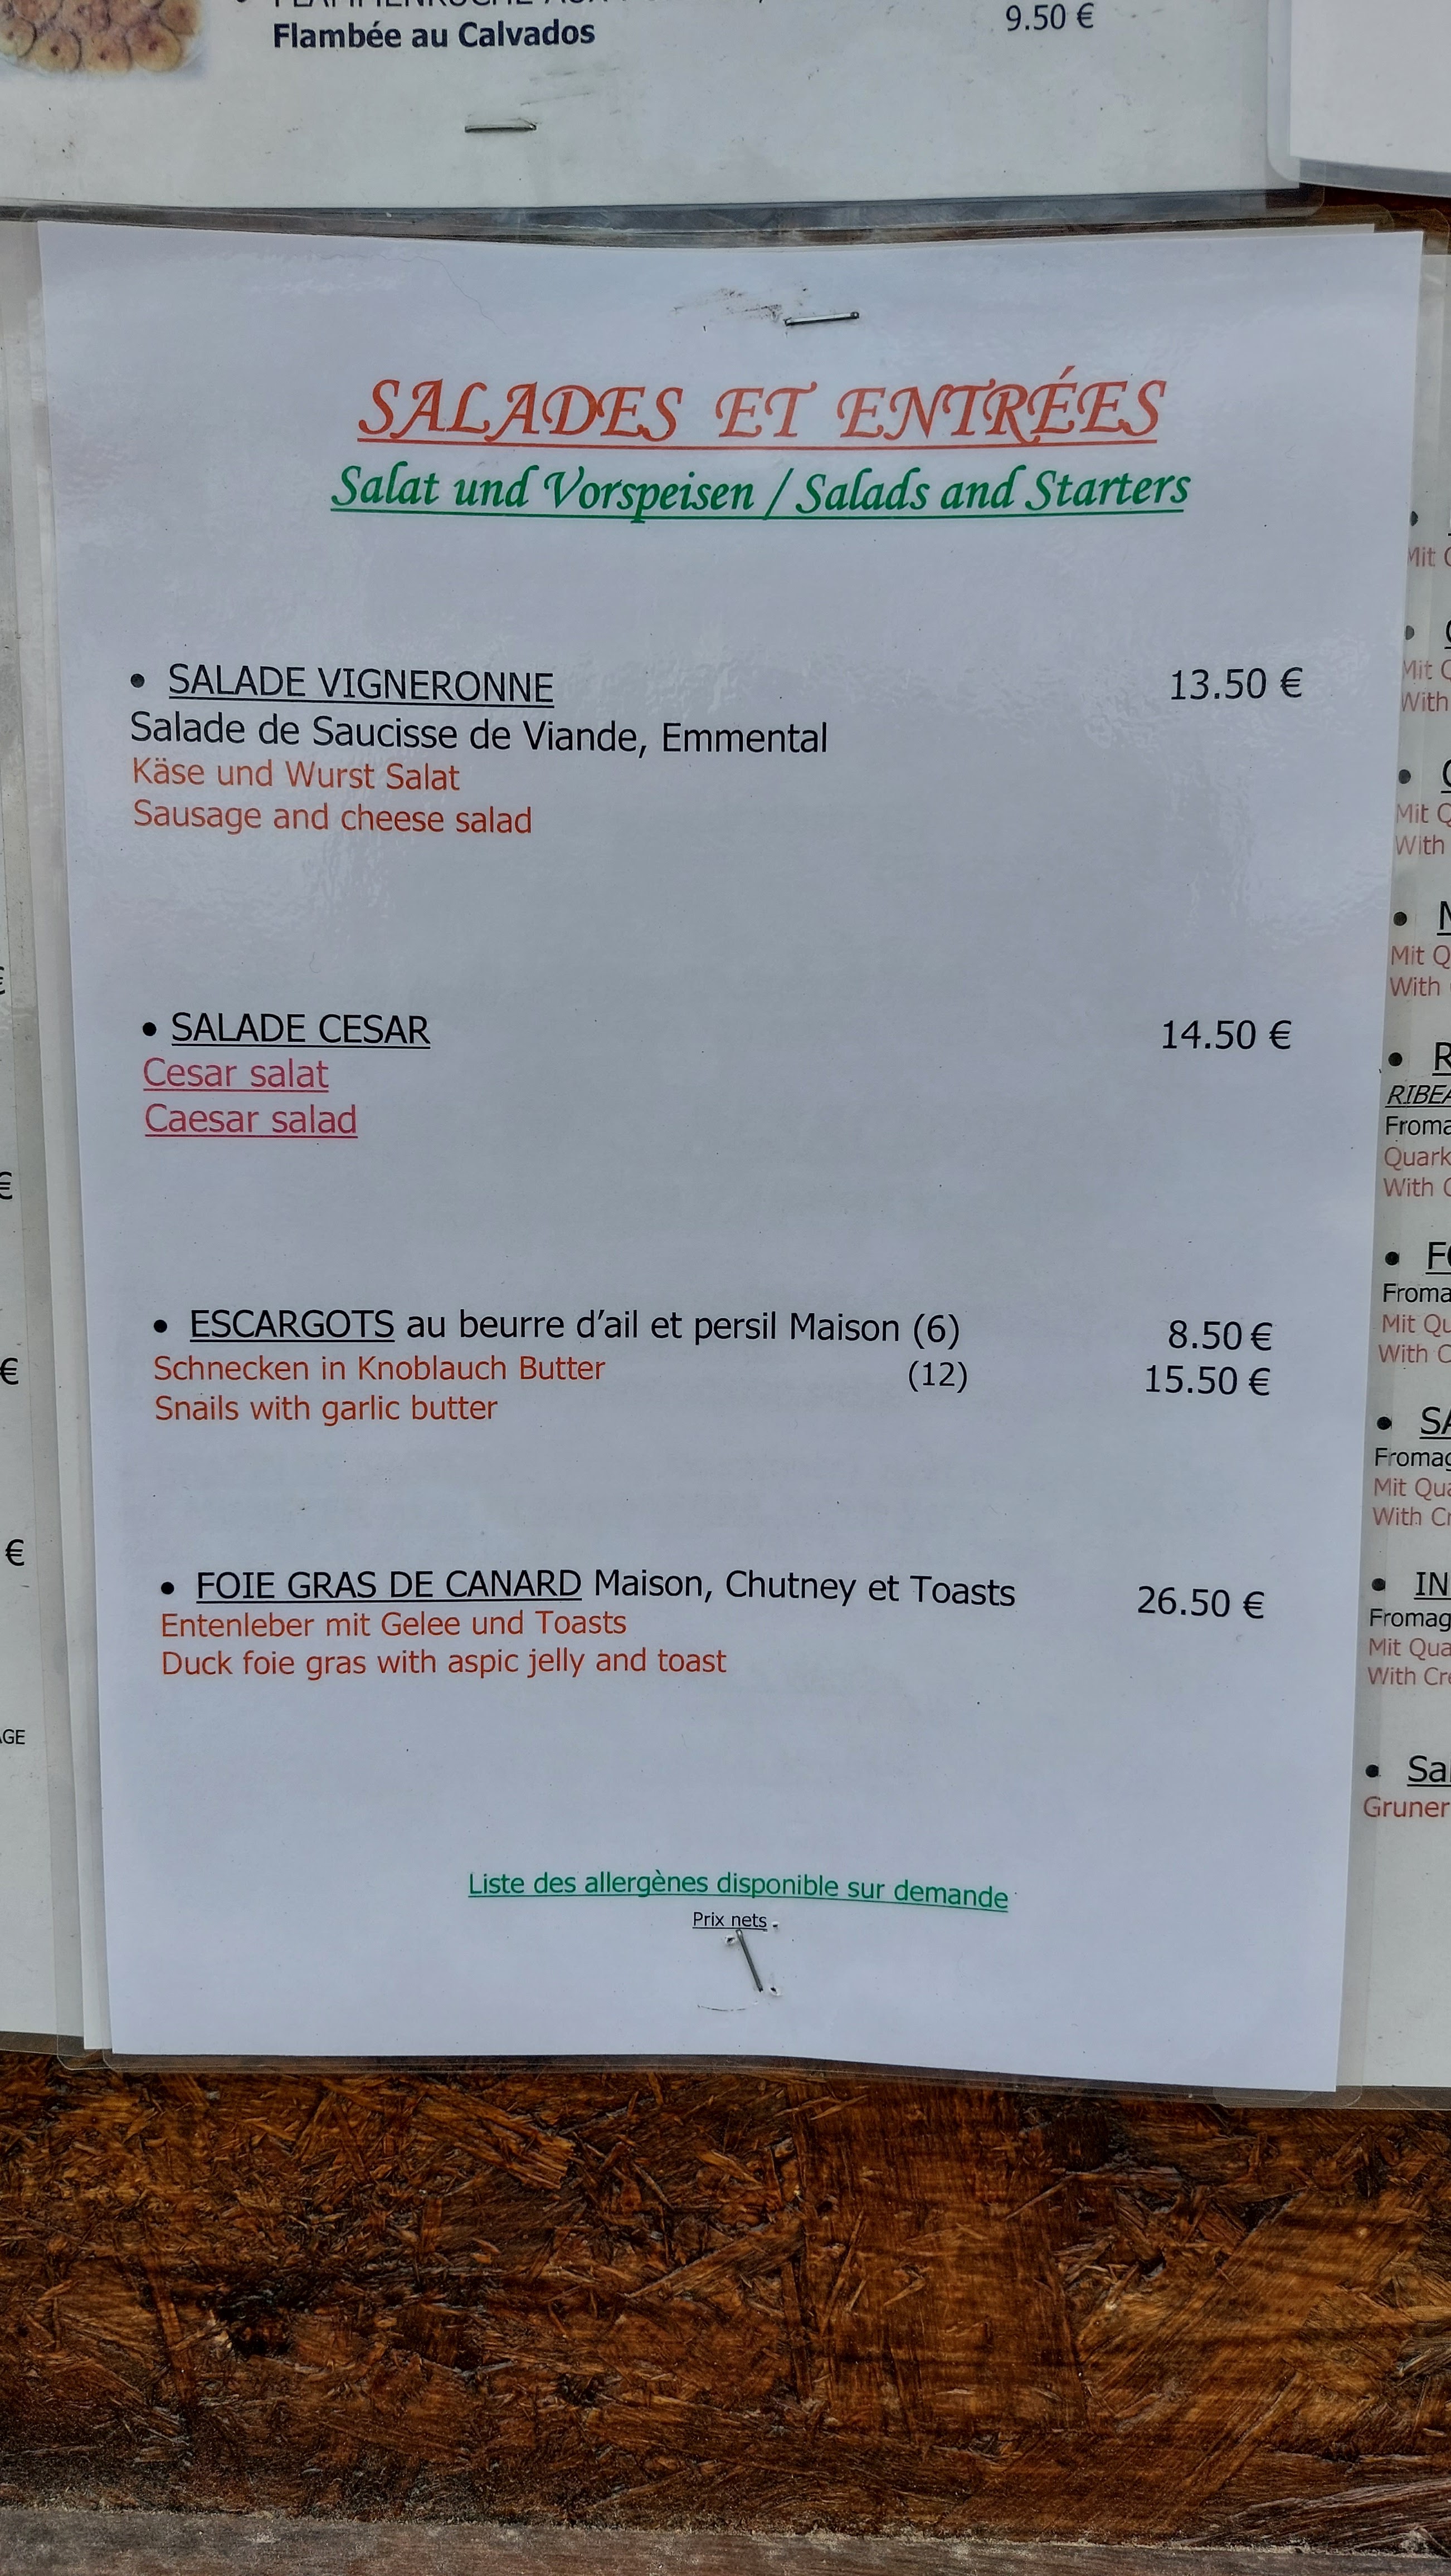 Flambée au Calvados
9.50 €
SALADES ET ENTRÉES
Salat und Vorspeisen / Salads and Starters
• SALADE VIGNERONNE 13.50 €
Salade de Saucisse de Viande, Emmental
Käse und Wurst Salat
Sausage and cheese salad
• SALADE CESAR 14.50 €
Cesar salat
Caesar salad
• ESCARGOTS au beurre d'ail et persil Maison (6) 8.50 €
Schnecken in Knoblauch Butter (12) 15.50 €
Snails with garlic butter
• FOIE GRAS DE CANARD Maison, Chutney et Toasts 26.50 €
Entenleber mit Gelee und Toasts
Duck foie gras with aspic jelly and toast
Liste des allergènes disponible sur demande
Prix nets
€
€
€
Mit
Mit
With
Mit
With
Mit
With
Quark
With
Mit
With
Mit
With
Mit
With